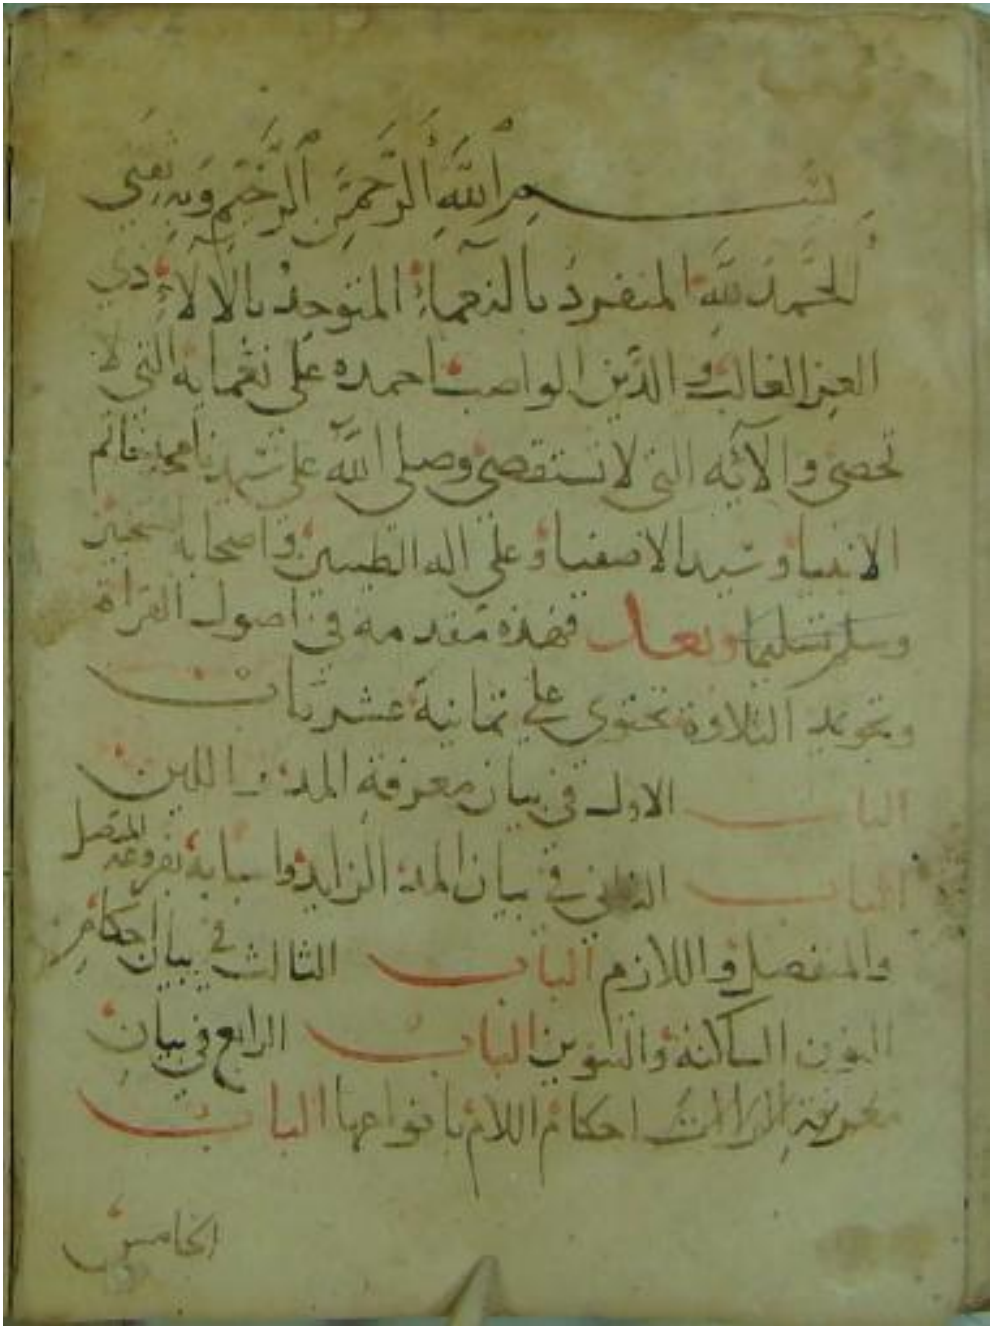 بسم الله الرحمن الرحيم وبه ثقتي
الحمد لله المنفرد بالنعماء المتوحد بالالاء ذي
العز الغالب والدين الواصب احمده على نعمايه التي لا
تحصى والآئه التي لا تستقصى وصلى الله على سيدنا محمد خاتم
الانبيا وسيد الاصفيا وعلى اله الطيبين واصحابه
وسلم تسليما وبعد فهذه مقدمة في اصول القراة
وتجويد التلاوة تحتوى على ثمانية عشر باب
الباب الاول في بيان معرفة المد واللين
الباب الثاني في بيان المد الزايد واسبابه بفروعه المتصل
والمنفصل واللازم الباب الثالث في بيان احكام
النون الساكنة والتنوين الباب الرابع في بيان
احكام اللام بانواعها الباب
الخامس